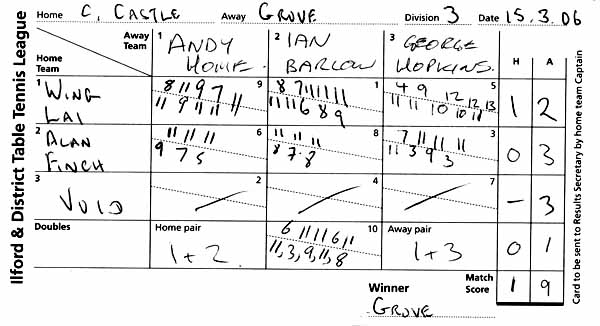 Home C. CASTLE Away GROVE Division 3 Date 15.3.06
Ilford & District Table Tennis League
Away Team
Home Team
1 ANDY HOWE
2 IAN BARLOW
3 GEORGE HOPKINS
H A
1 WING LAI
9
8 11 9 7
11 9 11 11
1
8 7 11 11 11
11 11 6 8 9
5
4 9 12 12 13
11 11 10 10 11
1 2
2 ALAN FINCH
6
11 11 11
9 7 5
8
11 11 11
8 7 8
3
7 11 11 11
11 3 9 3
0 3
3 VOID
2
4
7
- 3
Doubles
Home pair
1 + 2
10
6 11 11 6 11
11, 3, 9, 11, 8
Away pair
1 + 3
0 1
Winner
GROVE
Match Score
1 9
Card to be sent to Results Secretary by home team Captain